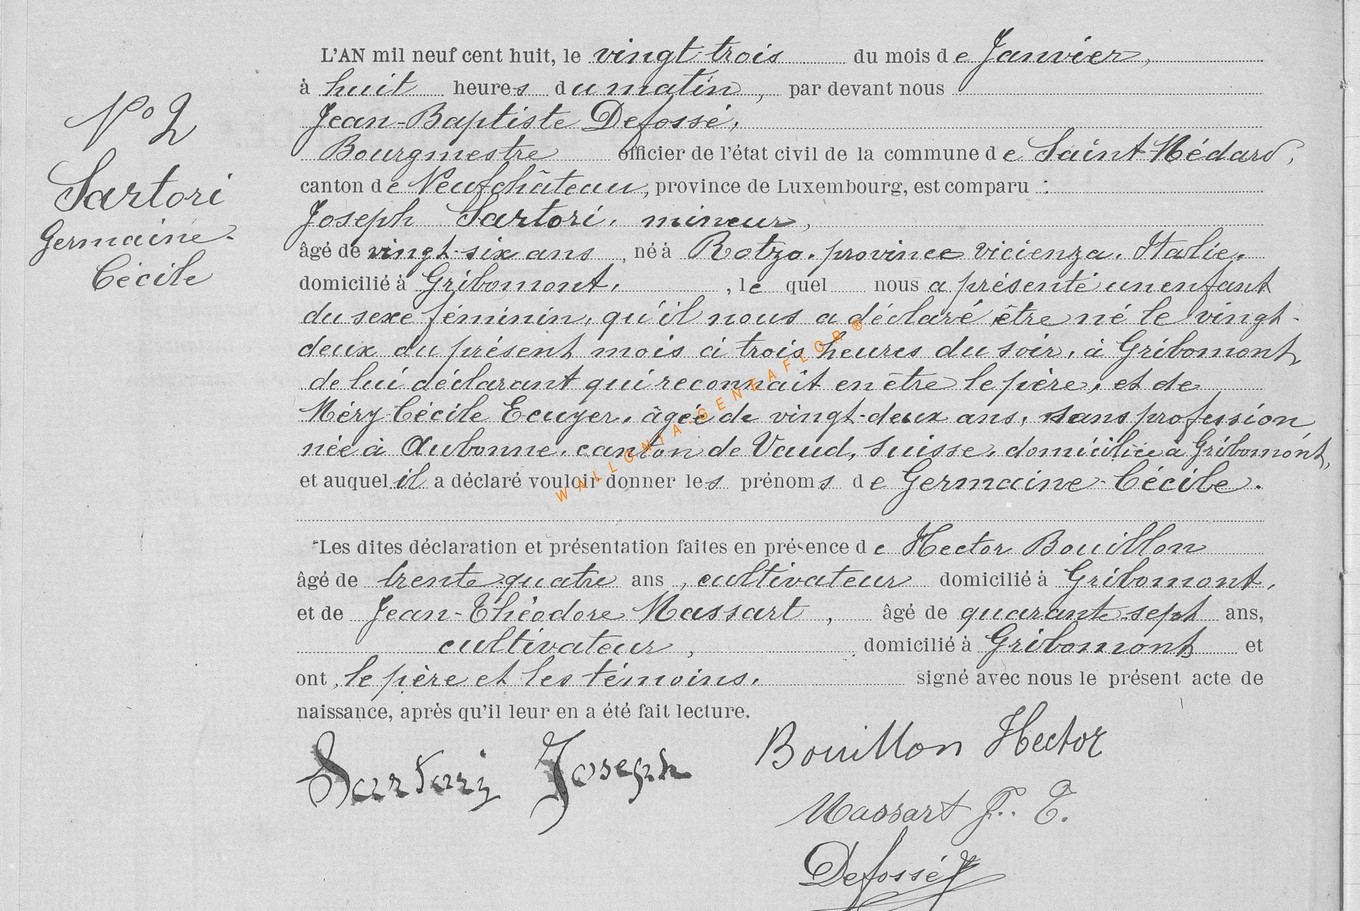 L'AN mil neuf cent huit, le vingt trois du mois de Janvier,
à huit heures du matin, par devant nous
Jean-Baptiste Defossé,
Bourgmestre officier de l'état civil de la commune de Saint Médard,
canton de Neufchâteau, province de Luxembourg, est comparu :
Joseph Sartori, mineur,
âgé de vingt-six ans, né à Rotzo, province vicienza, Italie,
domicilié à Gribomont, le quel nous a présenté un enfant
du sexe féminin, qu'il nous a déclaré être né le vingt-
deux du présent mois à trois heures du soir, à Gribomont,
de lui déclarant qui reconnait en être le père, et de
Méry Cécile Ecuyer, âgée de vingt-deux ans, sans profession,
née à Aubonne, canton de Vaud, Suisse, domiciliée à Gribomont,
et auquel il a déclaré vouloir donner les prénoms de Germaine-Cécile.
Les dites déclaration et présentation faites en présence de Hector Bouillon
âgé de trente quatre ans, cultivateur domicilié à Gribomont,
et de Jean-Théodore Massart, âgé de quarante-sept ans,
cultivateur, domicilié à Gribomont et
ont, le père et les témoins, signé avec nous le présent acte de
naissance, après qu'il leur en a été fait lecture.
N° 2
Sartori
Germaine-
Cécile
Sartori Joseph
Bouillon Hector
Massart J. T.
Defossé
WALLONIA-GENEAFLOR®